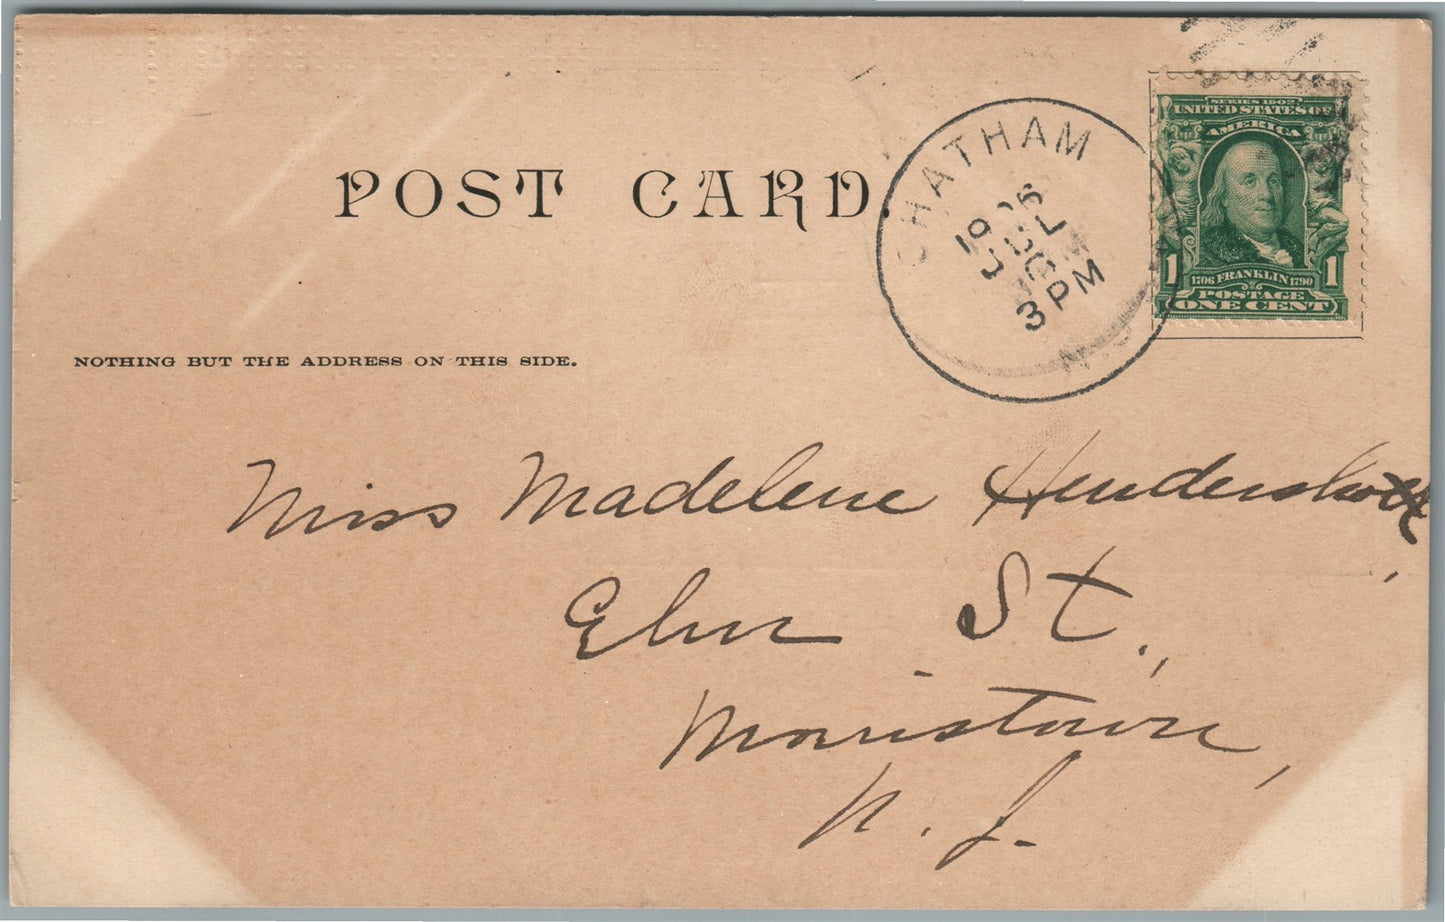 POST CARD.
CHATHAM
3 PM
N
SERIES 1902
UNITED STATES OF
AMERICA
1 1706 FRANKLIN 1790 1
POSTAGE
ONE CENT
NOTHING BUT THE ADDRESS ON THIS SIDE.
Miss Madelene Hendershot,
Elm St.,
Morristown,
N. J.